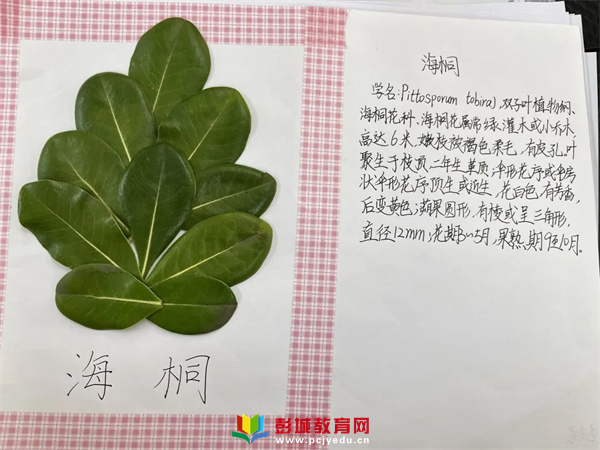 海桐
海桐
学名:Pittosporum tobira),双子叶植物纲、
海桐花科、海桐花属常绿灌木或小乔木,
高达6米,嫩枝被褐色柔毛,有皮孔,叶
聚生于枝顶,二年生革质,伞形花序或伞房
状伞形花序顶生或近生,花白色,有芳香,
后变黄色;蒴果圆形,有棱或呈三角形,
直径12mm;花期3~5月,果熟期9至10月。
彭城教育网
www.pcjyedu.cn